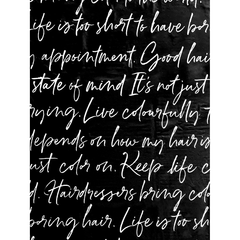 life is too short to have bor
y appointment. Good hai
state of mind It's not just
rying. Live colourfully
depends on how my hair is
ust color on. Keep life c
d. Hairdressers bring colo
boring hair. Life is too sh